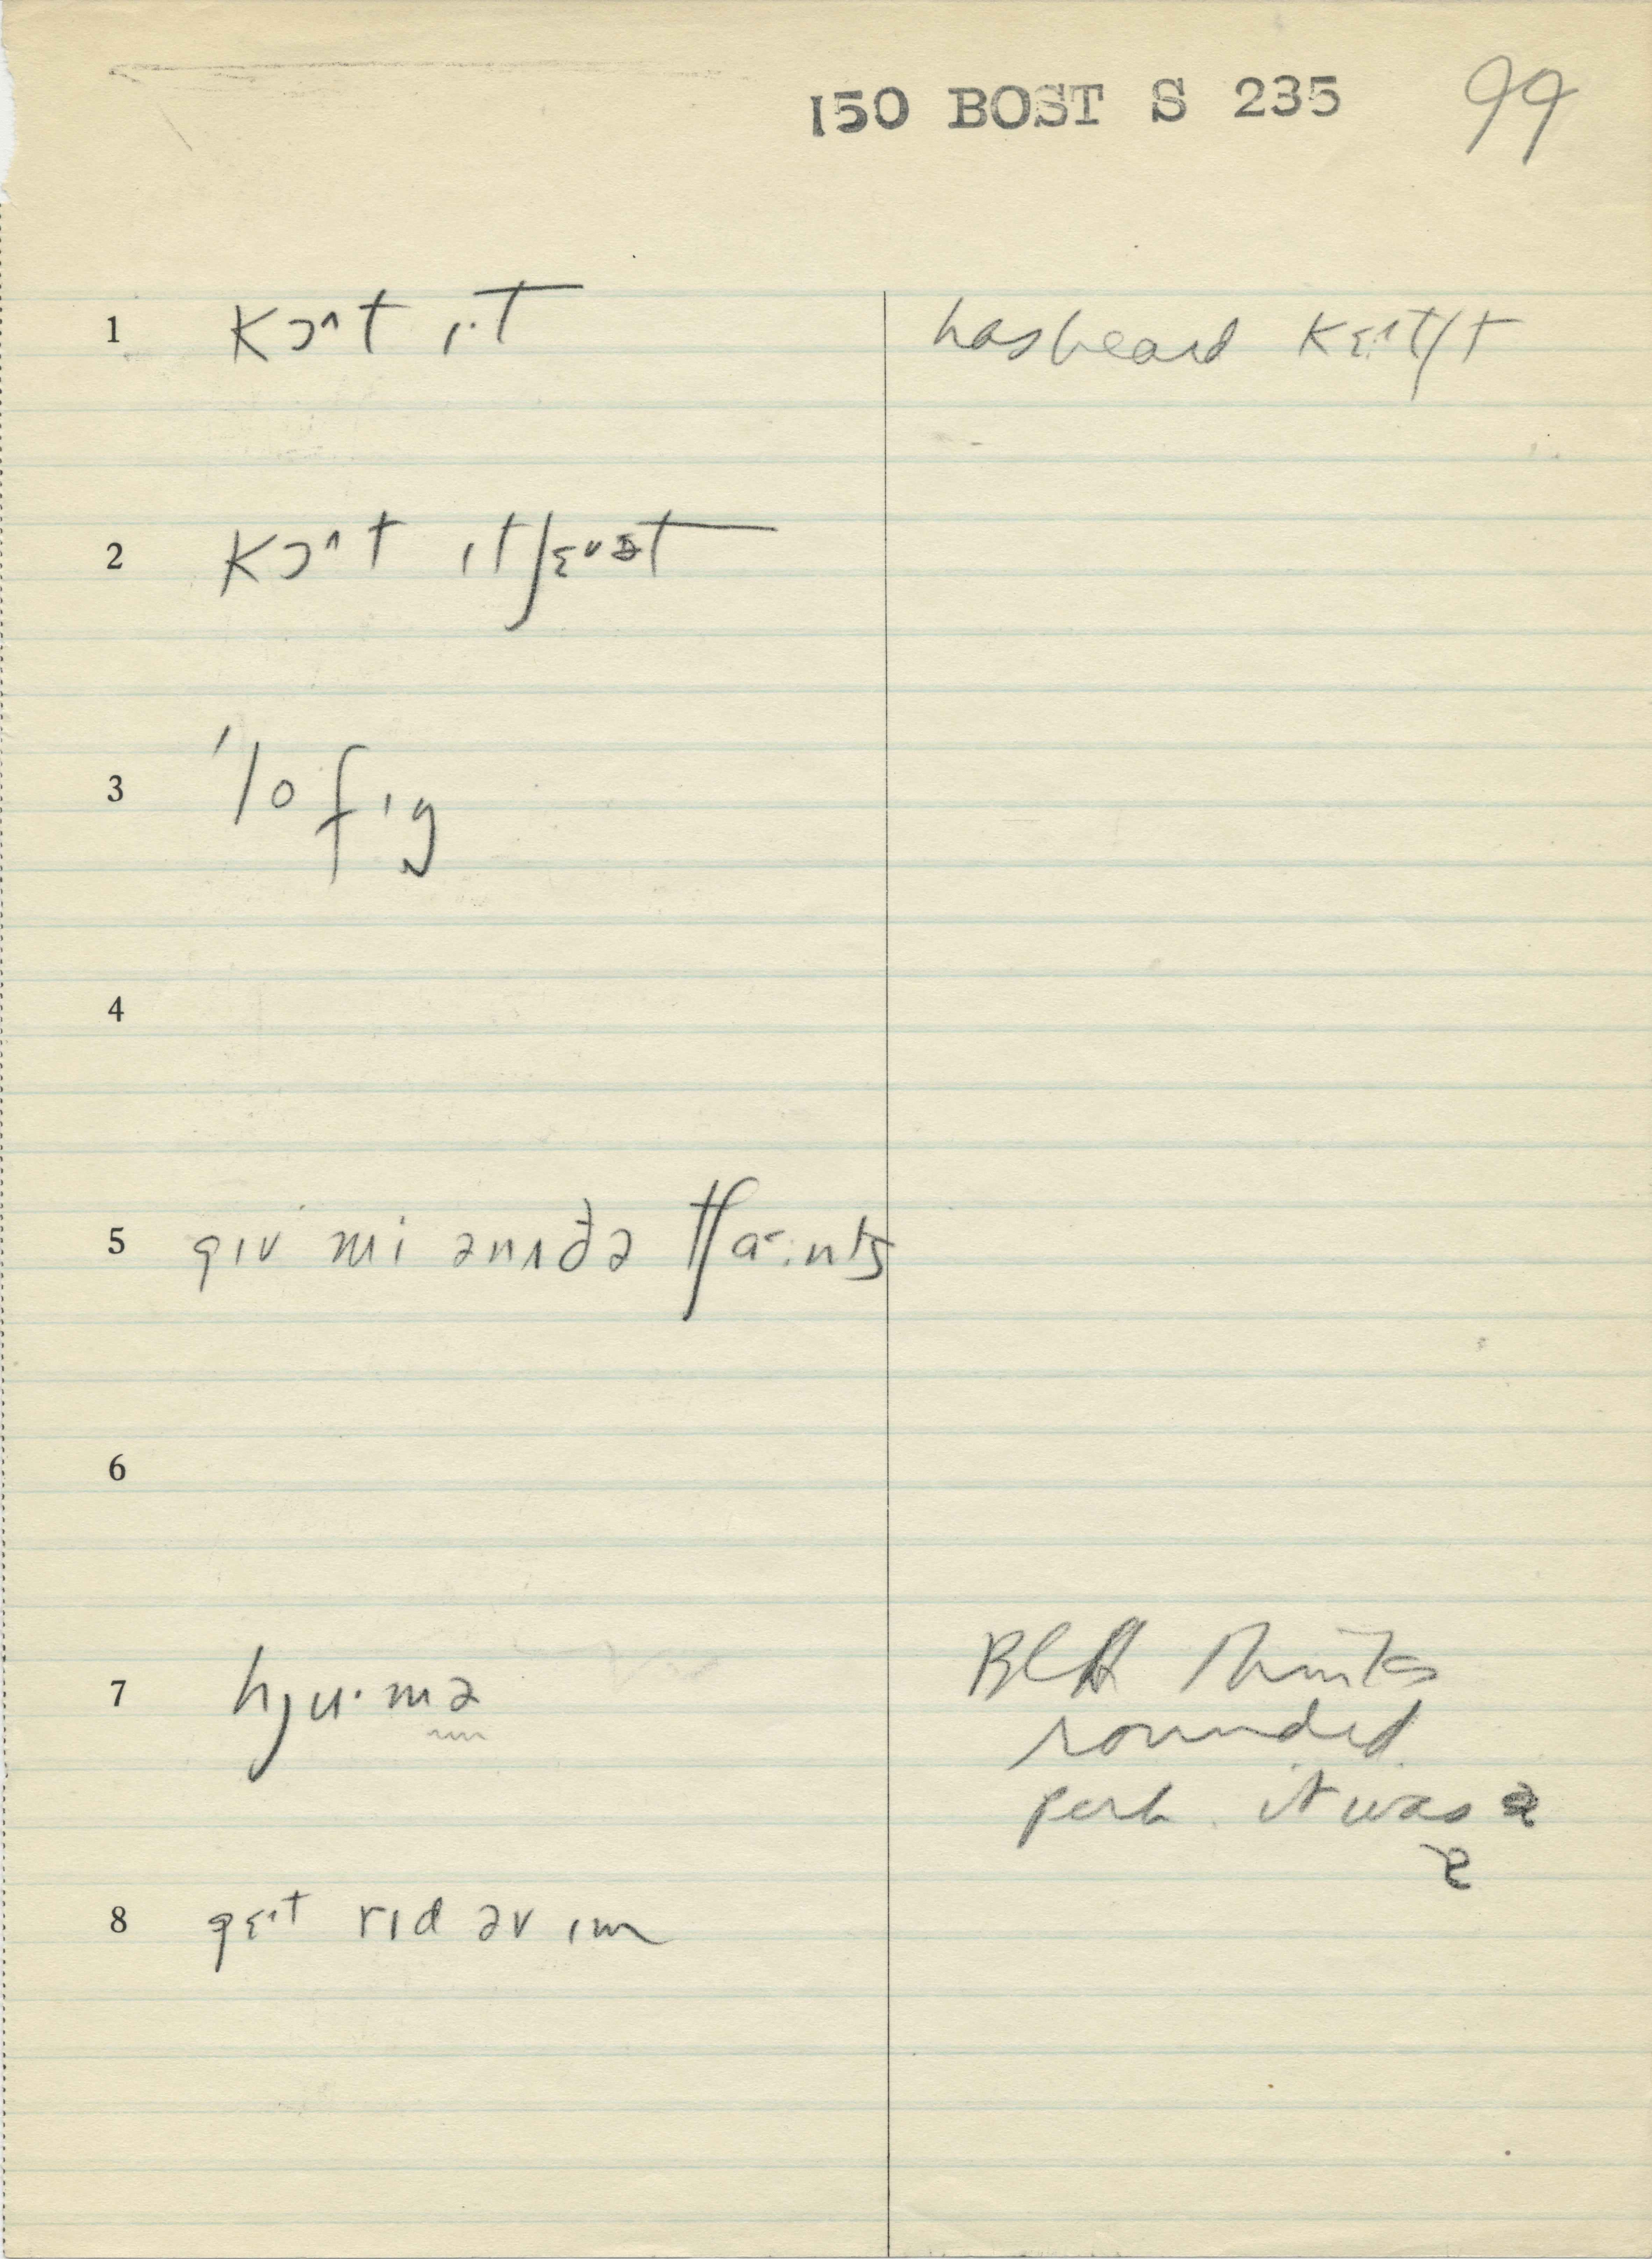 150 BOST S 235 99
1 kɔ^t ɪ·t has heard
2 kɔ^t ɪt
3 ˈlofɪg
4
5 gɪv mi ənʌðə tʃa·ɪnts
6
7 hju·mə BCH thinks
rounded
perh. it was ə
8 gɛ^t rɪd əv ɪm